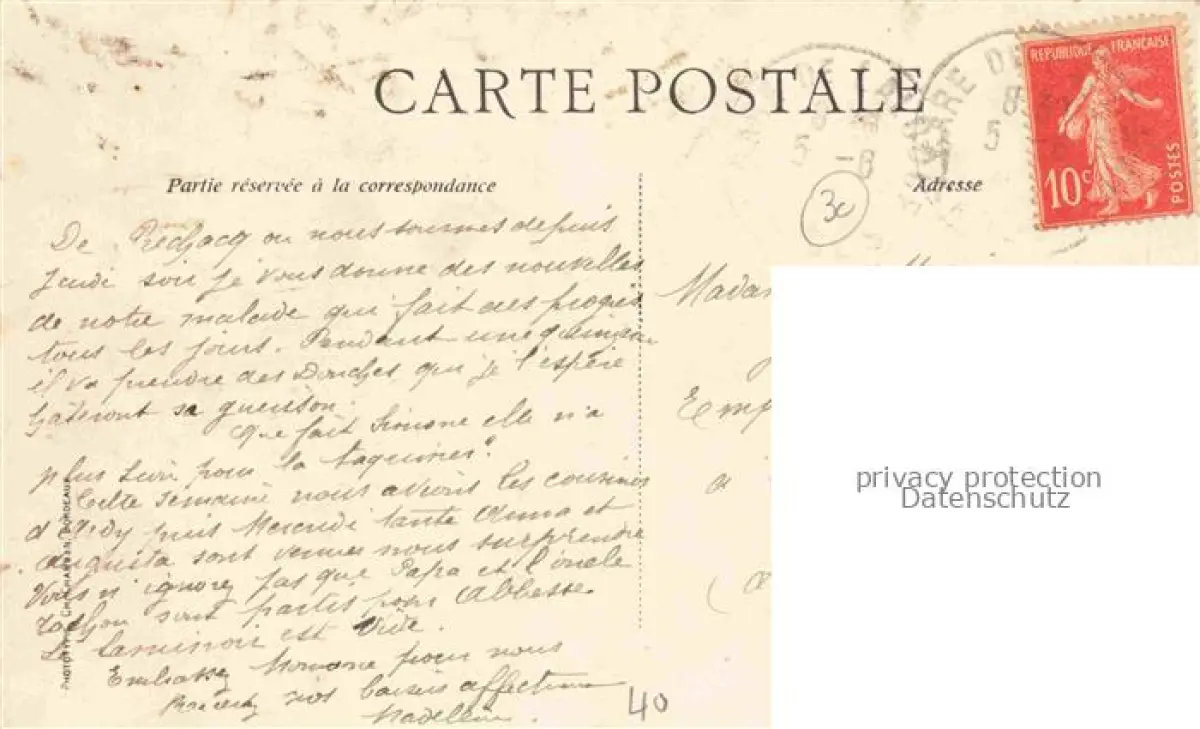 CARTE POSTALE
REPUBLIQUE FRANÇAISE
10c POSTES
Partie réservée à la correspondance
Adresse
3c
De Prechacq ou nous sommes depuis
Jeudi soir je vous donne des nouvelles
de notre malade qui fait des progrès
tous les jours. Pendant une quinzaine
il va prendre des Douches qui je l'espère
hâteront sa guérison.
Que fait Simone elle n'a
plus pour la taquiner?
Cette semaine nous avions les cousines
d' puis Mercredi tante Anna et
Augusta sont venues nous surprendre
Vous n'ignorez pas que Papa et l'oncle
sont partis pour Abbesse
Le laminoir est vide.
Embrassez pour nous
nos baisers affectueux
Madeleine.
40
Madam
Emp
a
(
PHOTOTYPIE BORDEAUX
privacy protection
Datenschutz